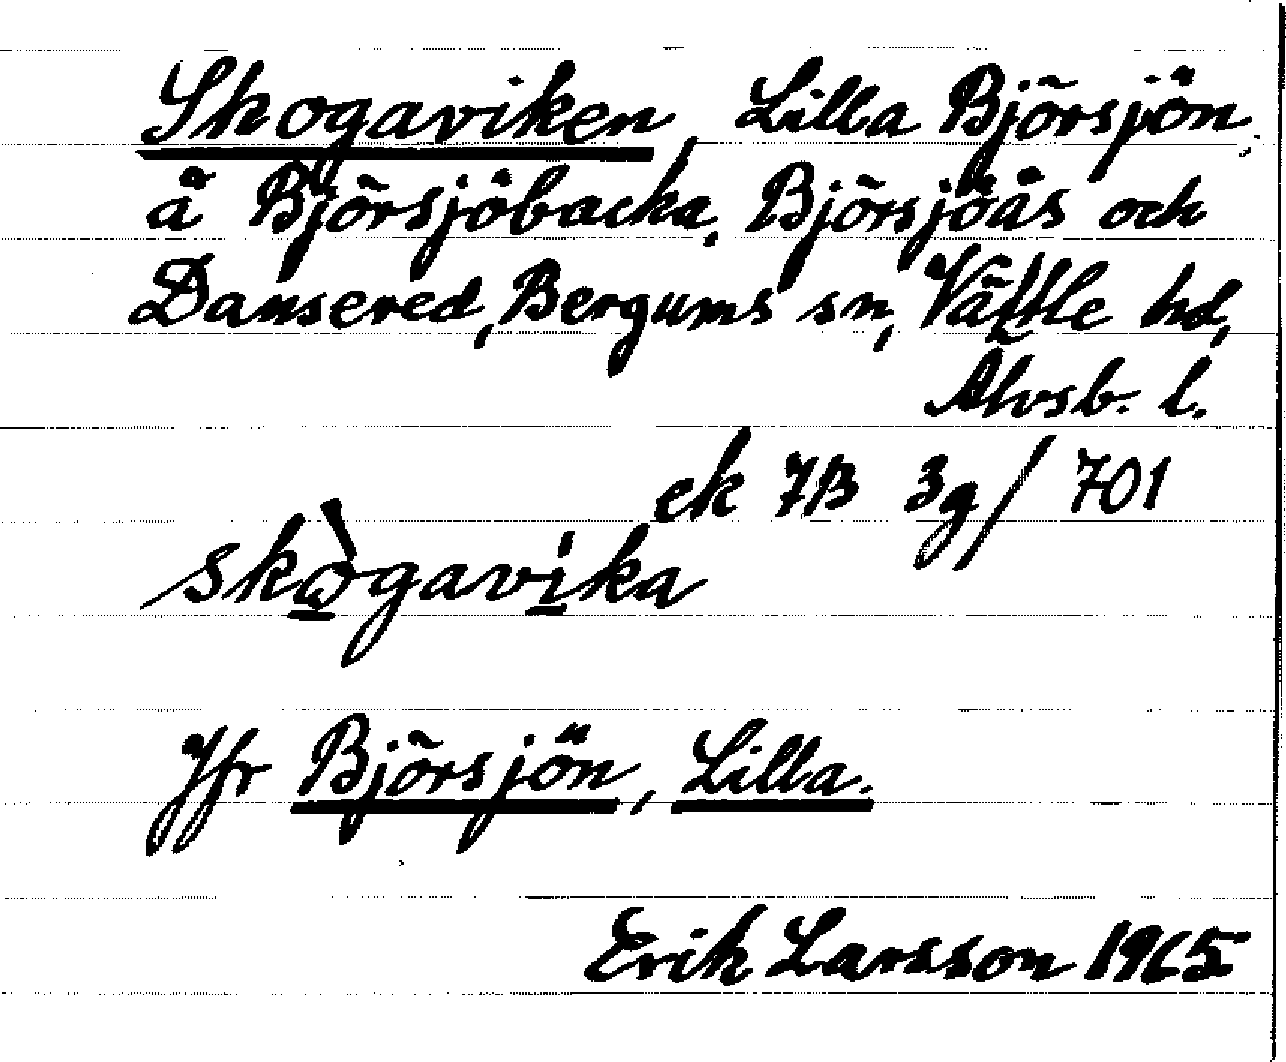 Skogaviken, Lilla Björsjön,
å Björsjöbacka, Björsjöås och
Dansered, Bergums sn, Vättle hd,
Älvsb. l.
ek 7B 3g/701
skò̲gavi̲ka
Jfr Björsjön, Lilla.
Erik Larsson 1965